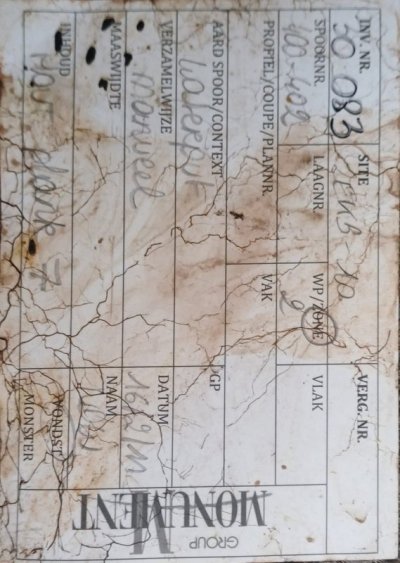 INV. NR. SITE VERG. NR.
50 083
SPOORNR. LAAGNR. WP/ZONE VLAK
100-402 2
PROFIEL/COUPE/PLANNR. VAK
AARD SPOOR/CONTEXT GP
Waterput
VERZAMELWIJZE DATUM
Manueel
MAASWIJDTE NAAM
INHOUD VONDST
MONSTER
Hout plank 7
GROUP
MONUMENT